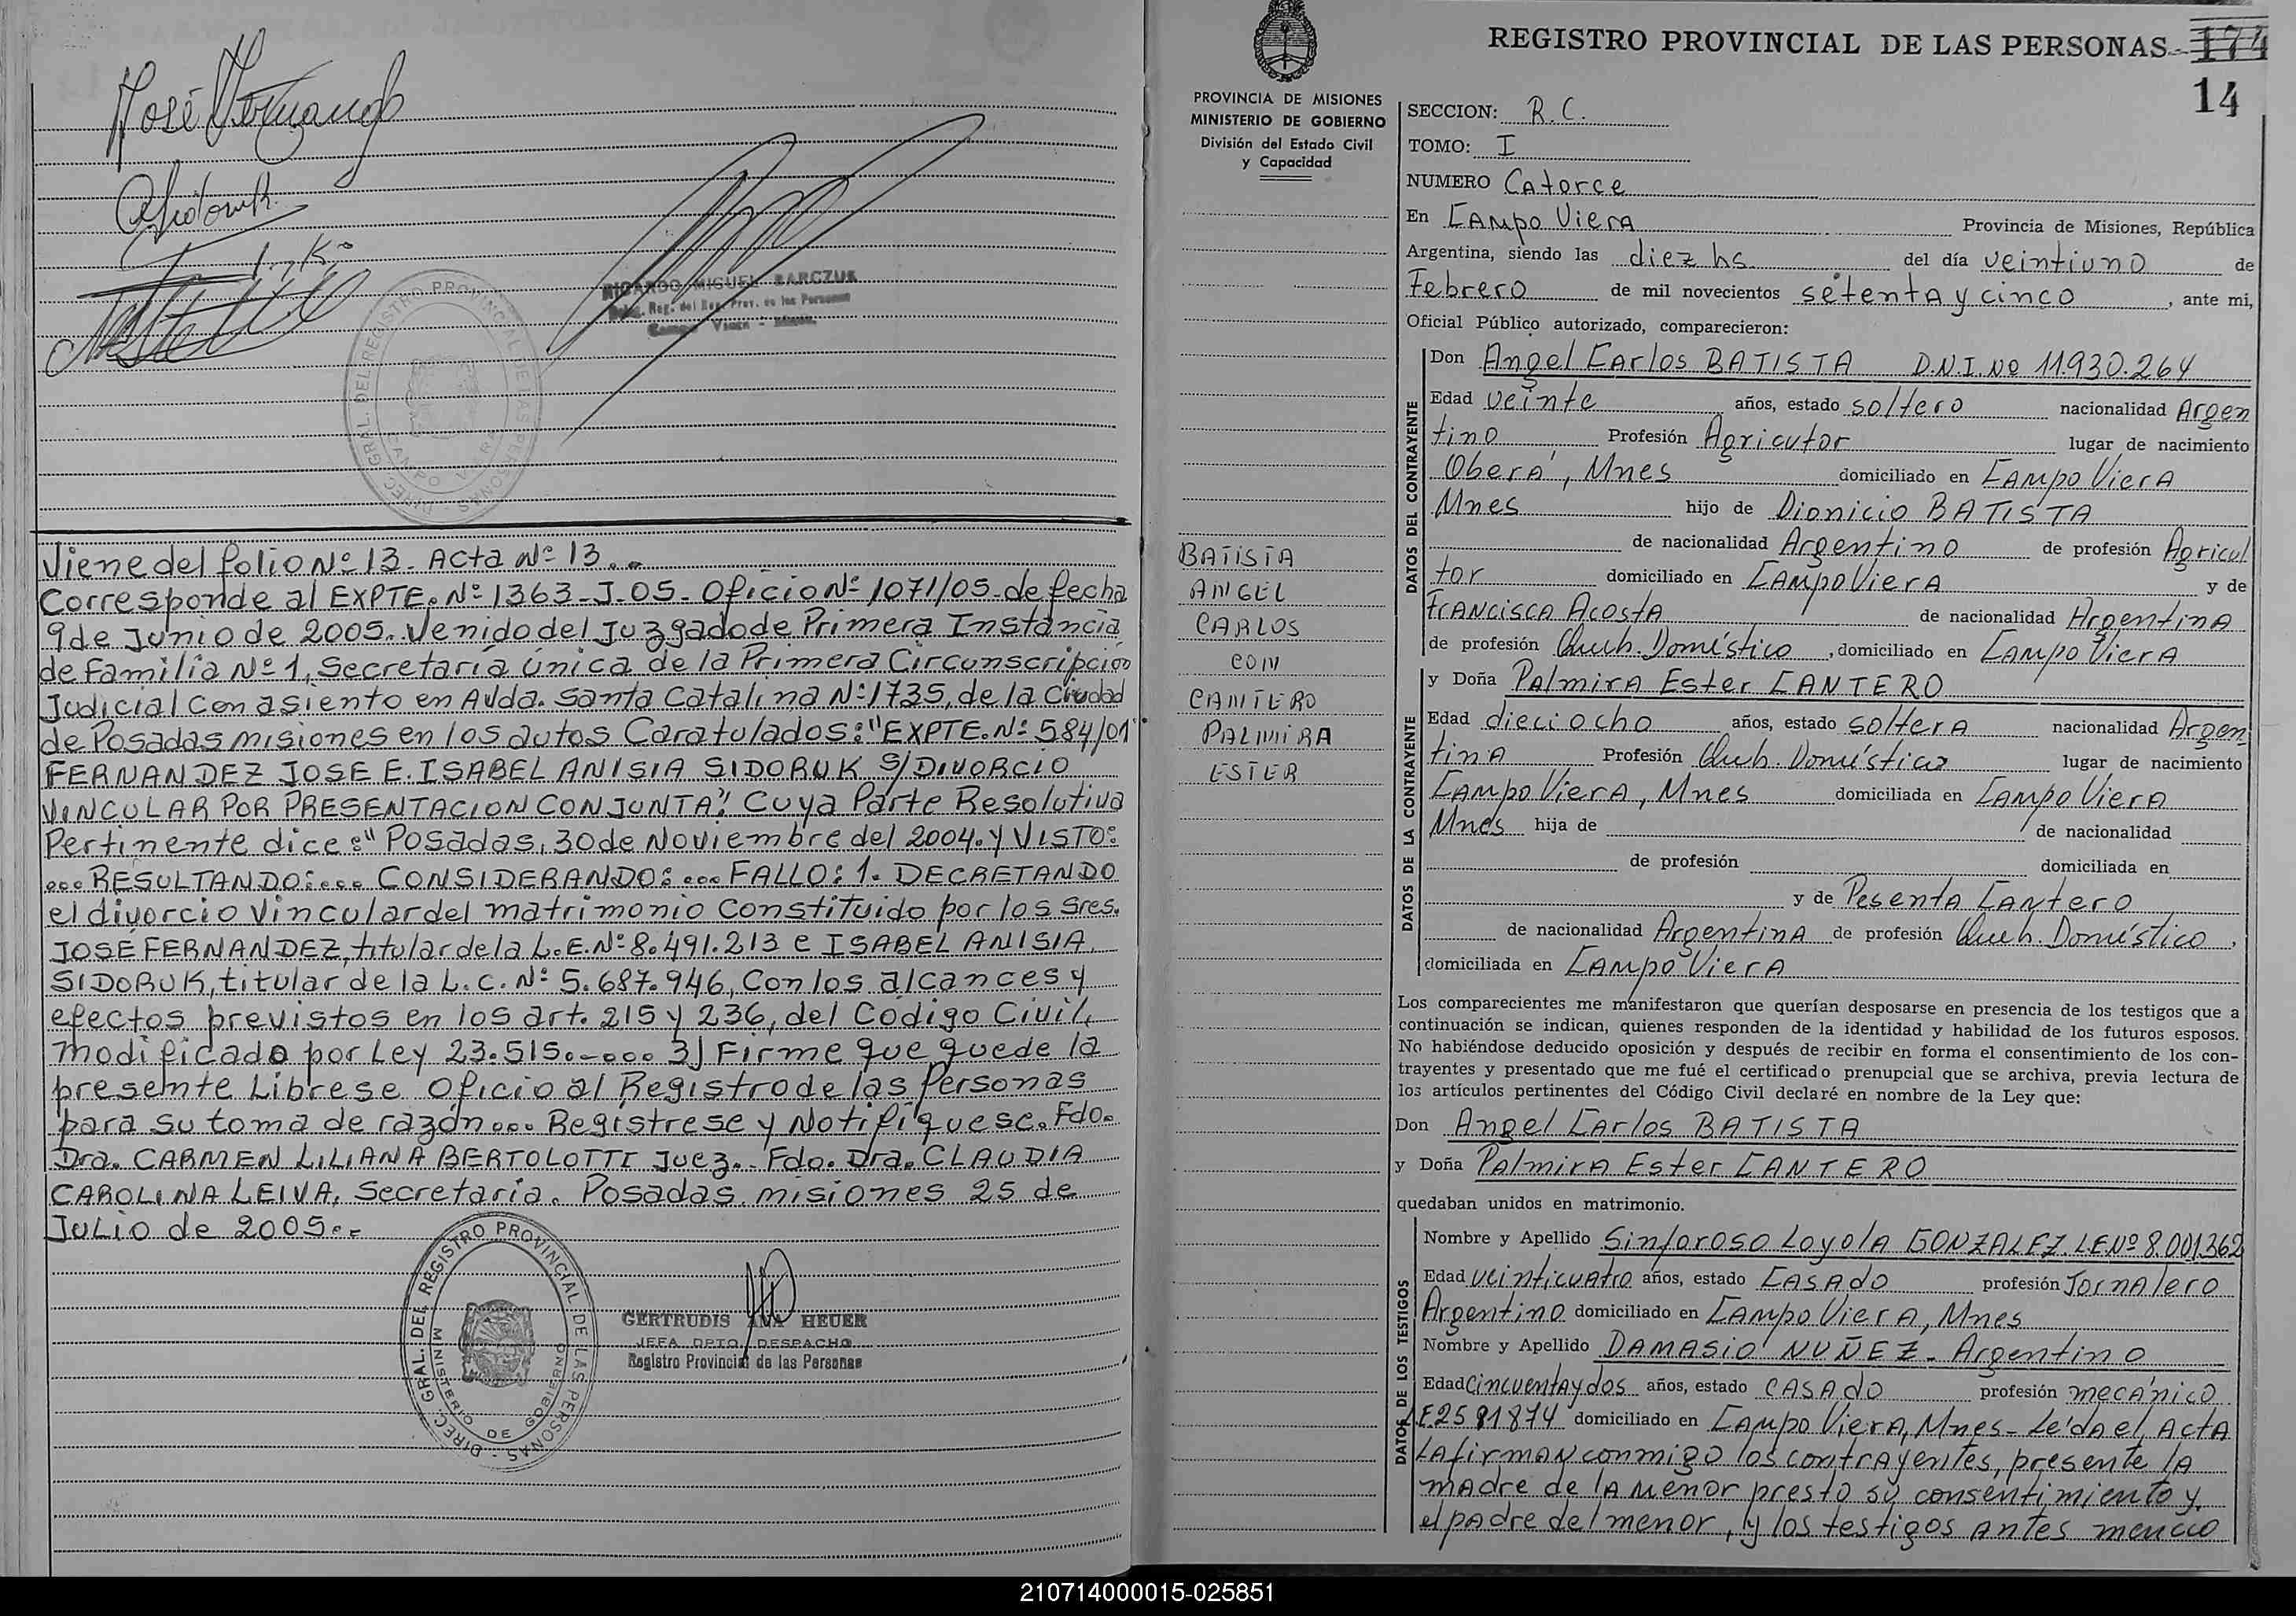 José Fernando
RICARDO MIGUEL BARCZUK
Deleg. Reg. del Reg. Prov. de las Personas
Campo Viera - Mnes.
DIREC. GRAL. DEL REGISTRO PROVINCIAL DE LAS PERSONAS
CAMPO VIERA
Viene del folio Nº 13. Acta Nº 13..
Corresponde al EXPTE. Nº 1363-J-05- Oficio Nº 1071/05-de fecha
9 de Junio de 2005. Venido del Juzgado de Primera Instancia
de Familia Nº 1, Secretaría única de la Primera Circunscripción
Judicial con asiento en Avda. Santa Catalina Nº 1735, de la Ciudad
de Posadas misiones en los autos Caratulados: "EXPTE. Nº 584/01"
FERNANDEZ JOSE E. ISABEL ANISIA SIDORUK S/DIVORCIO
VINCULAR POR PRESENTACION CONJUNTA". Cuya Parte Resolutiva
Pertinente dice: "Posadas, 30 de Noviembre del 2004. Y VISTO:
... RESULTANDO:... CONSIDERANDO:... FALLO: 1. DECRETANDO
el divorcio vincular del matrimonio constituido por los Sres.
JOSÉ FERNANDEZ, titular de la L.E. Nº 8.491.213 e ISABEL ANISIA
SIDORUK, titular de la L.C. Nº 5.687.946, Con los alcances y
efectos previstos en los art. 215 y 236, del Código Civil,
modificado por Ley 23.515.-... 3) Firme que quede la
presente Librese Oficio al Registro de las Personas
para su toma de razón... Registrese y Notifíquese. Fdo.
Dra. CARMEN LILIANA BERTOLOTTI Juez.. Fdo. Dra. CLAUDIA
CAROLINA LEIVA, Secretaria. Posadas, misiones 25 de
Julio de 2005.-
DIREC. GRAL. DEL REGISTRO PROVINCIAL DE LAS PERSONAS
MINISTERIO DE GOBIERNO
GERTRUDIS ANA HEUER
JEFA DPTO. DESPACHO
Registro Provincial de las Personas
REGISTRO PROVINCIAL DE LAS PERSONAS 174
14
PROVINCIA DE MISIONES
MINISTERIO DE GOBIERNO
División del Estado Civil
y Capacidad
BATISTA
ANGEL
CARLOS
CON
CANTERO
PALMIRA
ESTER
SECCION: R.C.
TOMO: I
NUMERO Catorce
En Campo Viera Provincia de Misiones, República
Argentina, siendo las diez hs. del día veintiuno de
Febrero de mil novecientos setenta y cinco, ante mi,
Oficial Público autorizado, comparecieron:
DATOS DEL CONTRAYENTE
Don Angel Carlos BATISTA D.N.I. Nº 11.930.264
Edad veinte años, estado soltero nacionalidad Argen
tino Profesión Agricutor lugar de nacimiento
Oberá, Mnes domiciliado en Campo Viera
Mnes hijo de Dionicio BATISTA
de nacionalidad Argentino de profesión Agricul
tor domiciliado en Campo Viera y de
Francisca Acosta de nacionalidad Argentina
de profesión Queh. Doméstico, domiciliado en Campo Viera
DATOS DE LA CONTRAYENTE
y Doña Palmira Ester CANTERO
Edad dieciocho años, estado soltera nacionalidad Argen-
tina Profesión Queh. Domésticos lugar de nacimiento
Campo Viera, Mnes domiciliada en Campo Viera
Mnes hija de de nacionalidad
de profesión domiciliada en
y de Pesenta Cantero
de nacionalidad Argentina de profesión Queh. Doméstico,
domiciliada en Campo Viera
Los comparecientes me manifestaron que querían desposarse en presencia de los testigos que a
continuación se indican, quienes responden de la identidad y habilidad de los futuros esposos.
No habiéndose deducido oposición y después de recibir en forma el consentimiento de los con-
trayentes y presentado que me fué el certificado prenupcial que se archiva, previa lectura de
los artículos pertinentes del Código Civil declaré en nombre de la Ley que:
Don Angel Carlos BATISTA
y Doña Palmira Ester CANTERO
quedaban unidos en matrimonio.
DATOS DE LOS TESTIGOS
Nombre y Apellido Sinforoso Loyola GONZALEZ. L.E. Nº 8.001.362
Edad veinticuatro años, estado casado profesión Jornalero
Argentino domiciliado en Campo Viera, Mnes
Nombre y Apellido DAMASIO NUÑEZ - Argentino
Edad cincuenta y dos años, estado casado profesión mecánico
LE 2591874 domiciliado en Campo Viera, Mnes - Leída el Acta
la firman conmigo los contrayentes, presente la
madre de la menor presto su consentimiento y
el padre del menor, y los testigos antes mencio
210714000015-025851